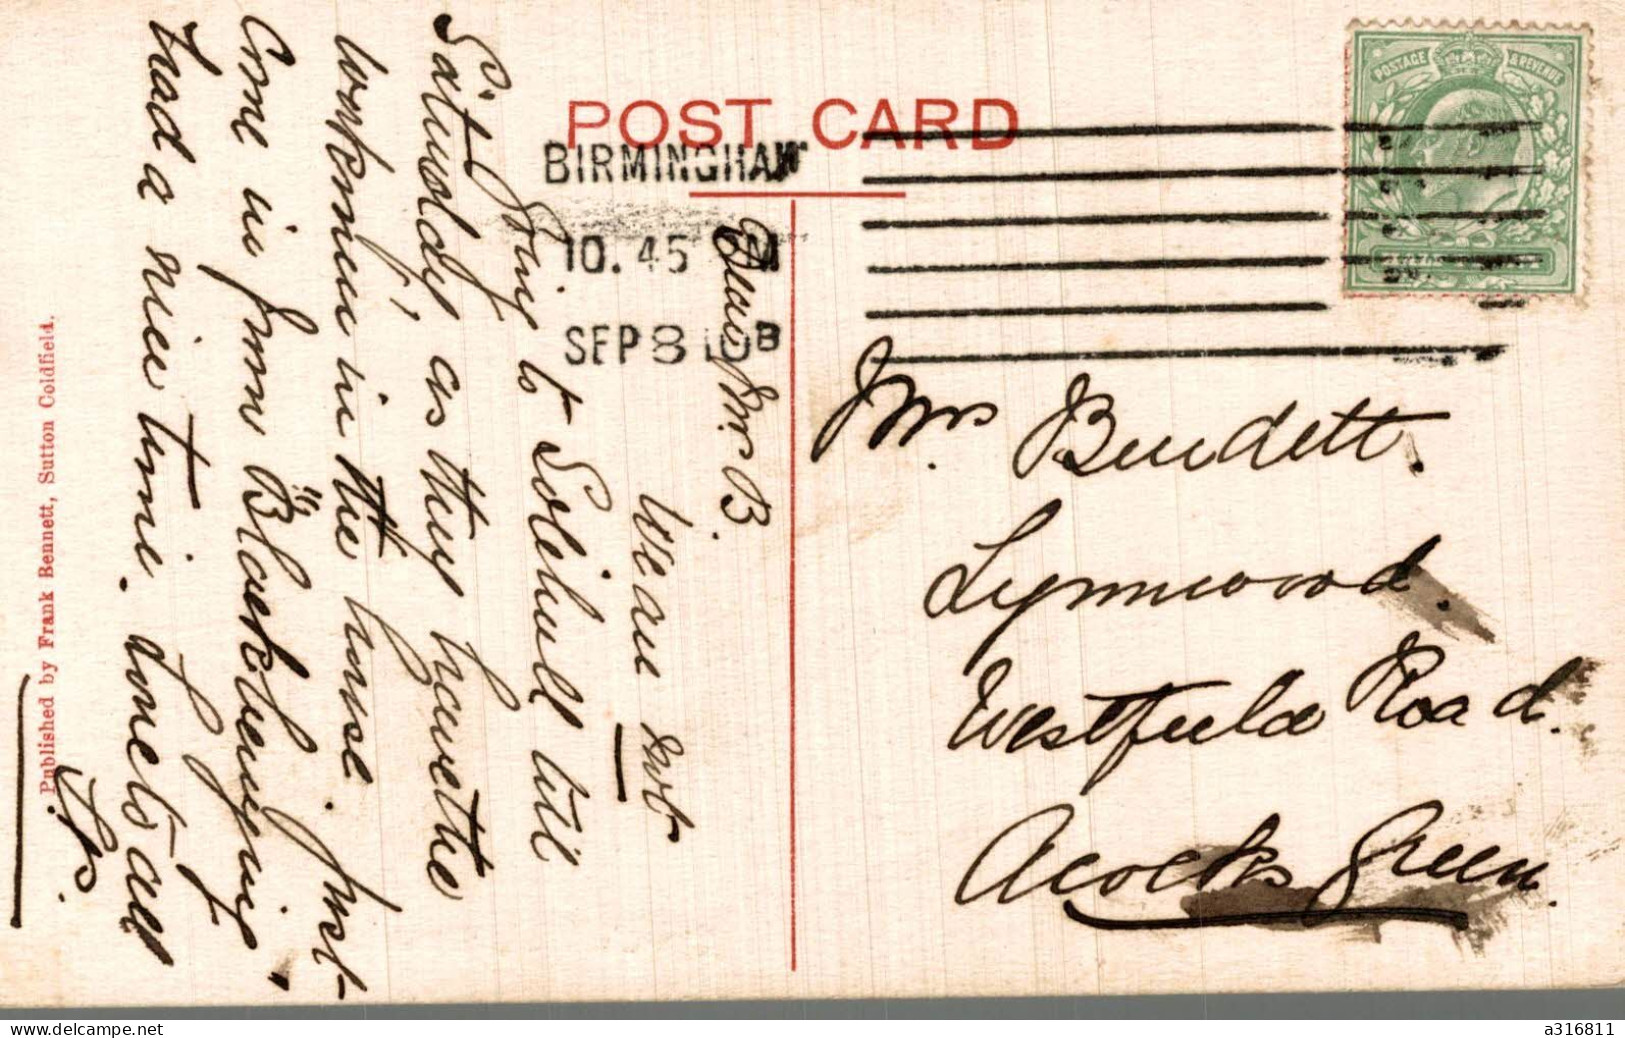 POST CARD
BIRMINGHAM
10. 45 M
SEP 8 10 B
POSTAGE & REVENUE
Dear Mr B.
We are not
going to Solihull till
Sat
Saturday, as they have the
workmen in the house. Just
come in from Blackberrying,
had a nice time. Love to all
Published by Frank Bennett, Sutton Coldfield.
Mrs Burdett.
Lynnwood.
Westfield Road.
Acocks Green.
a316811